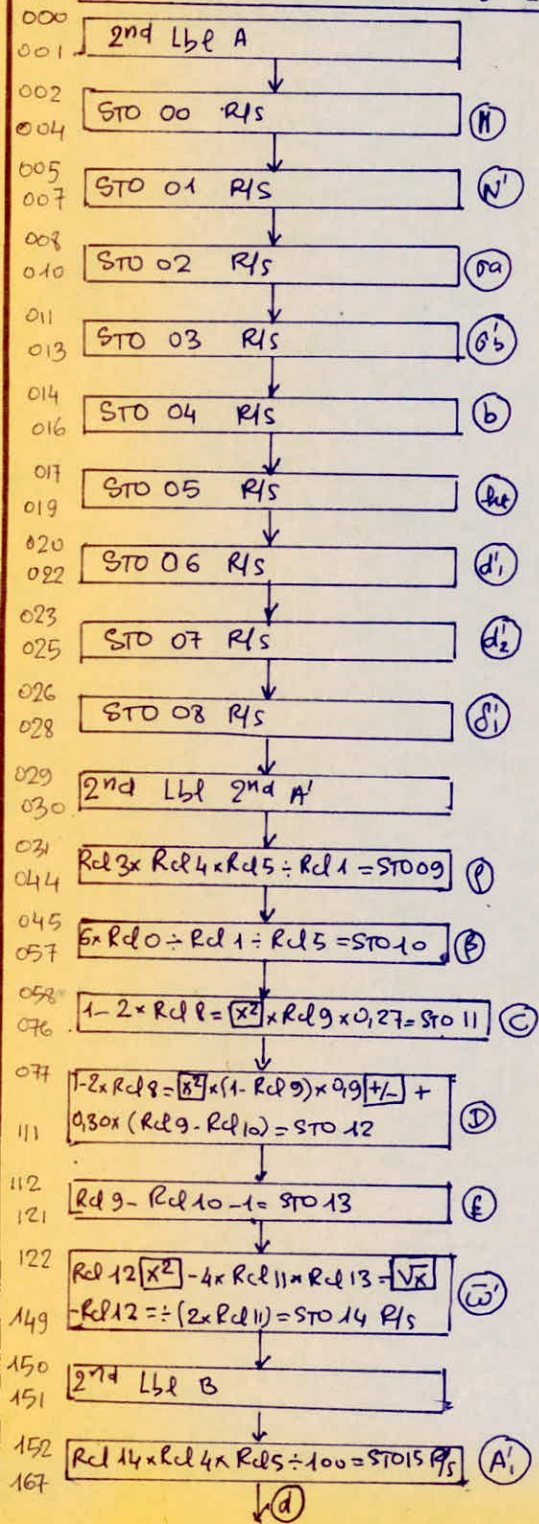 000
001 2nd Lbl A
002
004 STO 00 R/S M
005
007 STO 01 R/S N'
008
010 STO 02 R/S σa
011
013 STO 03 R/S σ'b
014
016 STO 04 R/S b
017
019 STO 05 R/S ht
020
022 STO 06 R/S d'1
023
025 STO 07 R/S d'2
026
028 STO 08 R/S δ'1
029
030 2nd Lbl 2nd A'
031 Rcl 3x Rcl 4 x Rcl 5 ÷ Rcl 1 = STO 09
044
045 6x Rcl 0 ÷ Rcl 1 ÷ Rcl 5 = STO 10 B
057
058 1-2 x Rcl 8 = x² x Rcl 9 x 0,27 = STO 11 C
076
077 1-2x Rcl 8 = x² x (1- Rcl 9) x 0,9 +/- +
111 0,30x (Rcl 9 - Rcl 10) = STO 12 D
112
121 Rcl 9 - Rcl 10 -1 = STO 13 E
122 Rcl 12 x² -4x Rcl 11 x Rcl 13 = √x
149 -Rcl 12 = ÷ (2x Rcl 11) = STO 14 R/S ω̄'
150
151 2nd Lbl B
152 Rcl 14 x Rcl 4 x Rcl 5 ÷ 100 = STO 15 R/S A'1
167
d